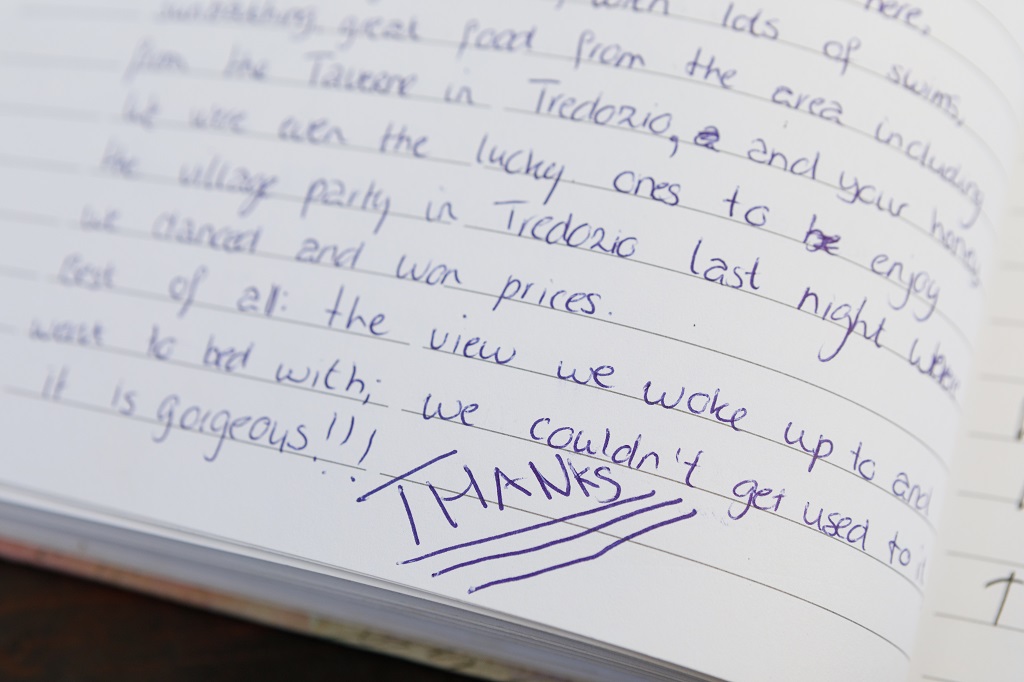 with lots of swims,
here,
great food from the area including
from the Taverne in Tredozio, and your honey
we were even the lucky ones to be enjoy
the village party in Tredozio last night where
we danced and won prices.
Best of all: the view we woke up to and
want to bed with; we couldn't get used to it
it is gorgeous!!!
THANKS